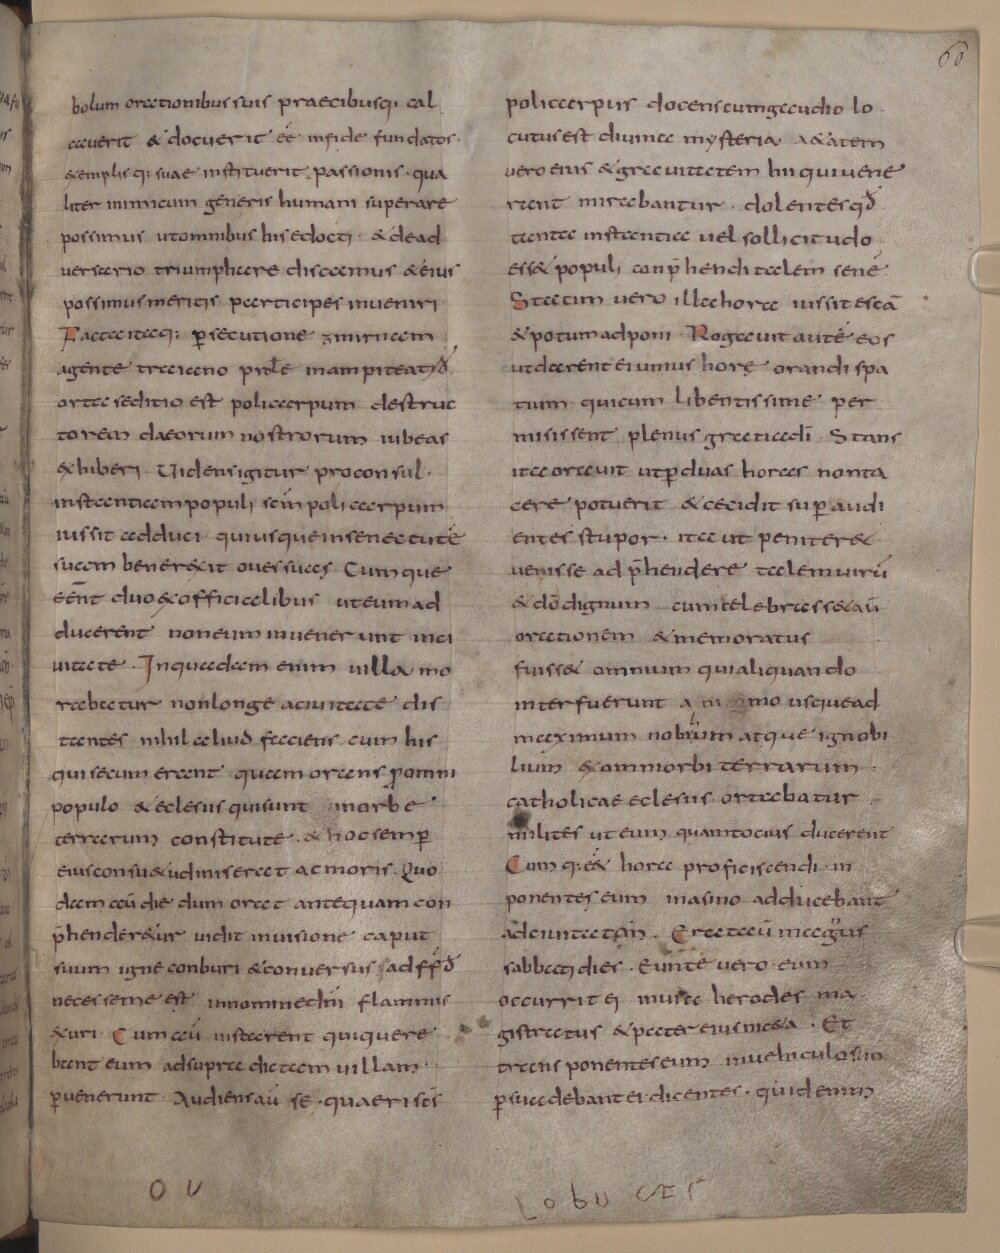 60
bolum orationibus suis praecibusq; cal
caverit & docuerit eē in fide fundatos.
exemplisq; suae instituerit passionis. qua
liter inimicum generis humani superare
possimus ut omnibus his edocti. & de ad
versario triumphare discamus & eius
possimus meritis participes inveniri.
Facta itaq; persecutione zmirneam
agente traiano
orta seditio est policarpum destruc
torem daeorum nostrorum iubeas
exhiberi. Videns igitur proconsul.
instantiam populi scm̄ policarpum
iussit adduci. qui usque in senectutē
suam bene rexit oues suas. Cumque
eēnt duo ex officialibus ut eum ad
ducerent non eum invenerunt in ci
vitate. In quadam enim villa mo
rabatur non longe a civitate dis
tantes nihil aliud faciens cum his
qui secum erant quam orans pro omni
populo & eclesiis qui sunt in orbe
terrarum constitute. & hoc semp
eius consu&udinis erat ac moris. Quo
dam aū die dum orat antequam con
p̄hender&ur vidit in visione caput
suum igne conburi & conversus
necesse me est in nomine dn̄i flammis
exuri. Cum aū instarent qui quere
bant eum ad supra dictam villam.
pvenerunt. Audiens aū se. quaeri scs̄
policarpus docens cum gaudio lo
cutus est divina mysteria. a&atem
vero eius & gravitatem hii qui vene
rant mirabantur. dolentes qđ
tanta instantia vel sollicitudo
ess& populi conp̄hendi talem senē
Statim vero illa hora iussit escā
& potum adponi. Rogavit autē eos
ut darent ei unius horę orandi spa
tium. qui cum libentissime per
misissent plenus gratia dī. Stans
ita oravit ut p duas horas non ta
cere potuerit & cecidit sup audi
entes stupor. ita ut peniter&
venisse ad p̄hendere talem virū
& dō dignum cum celebrass& aū
orationem & memoratus
fuiss& omnium qui aliquando
interfuerunt a minimo usque ad
maximum nobilium atque ignobi
lium & omni orbi terrarum.
catholicae eclesiis ortabatur
milites ut eum quamtocius ducerent
Cumq; ēx hora proficiscendi. in
ponentes eum in asino adducebant
ad civitatam. Erat aū magnus
sabbati dies. Eunte vero eum
occurrit ei in via herodes ma
gistratus & pater eius nic&a. Et
trans ponentes eum in vehiculo suo
psuadebant ei dicentes. quid enim